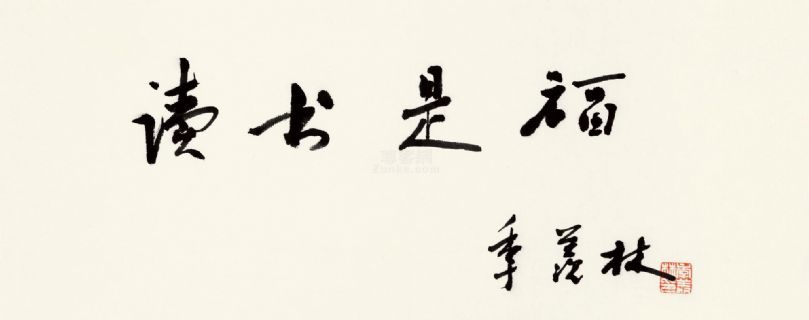 讀书是福
尊客網
Zunke.com
季羡林